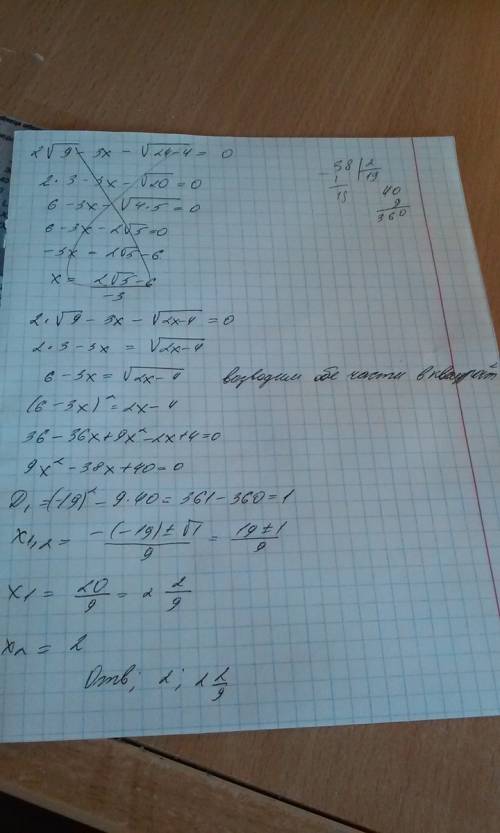 2√9 - 3x - √24-4 = 0
2·3 - 3x - √20 = 0
6 - 3x - √4·5 = 0
6 - 3x - 2√5 = 0
-3x = 2√5 - 6
x = (2√5 - 6)/-3
38 | 2
1 19
18
40
9
360
2·√9 - 3x - √2x-4 = 0
2·3 - 3x = √2x-4
6 - 3x = √2x-4 возводим обе части в квадрат
(6 - 3x)² = 2x - 4
36 - 36x + 9x² - 2x + 4 = 0
9x² - 38x + 40 = 0
D₁ = (-19)² - 9·40 = 361 - 360 = 1
x₁,₂ = (-(-19) ± √1)/9 = (19 ± 1)/9
x₁ = 20/9 = 2 2/9
x₂ = 2
Отв; 2; 2 2/9